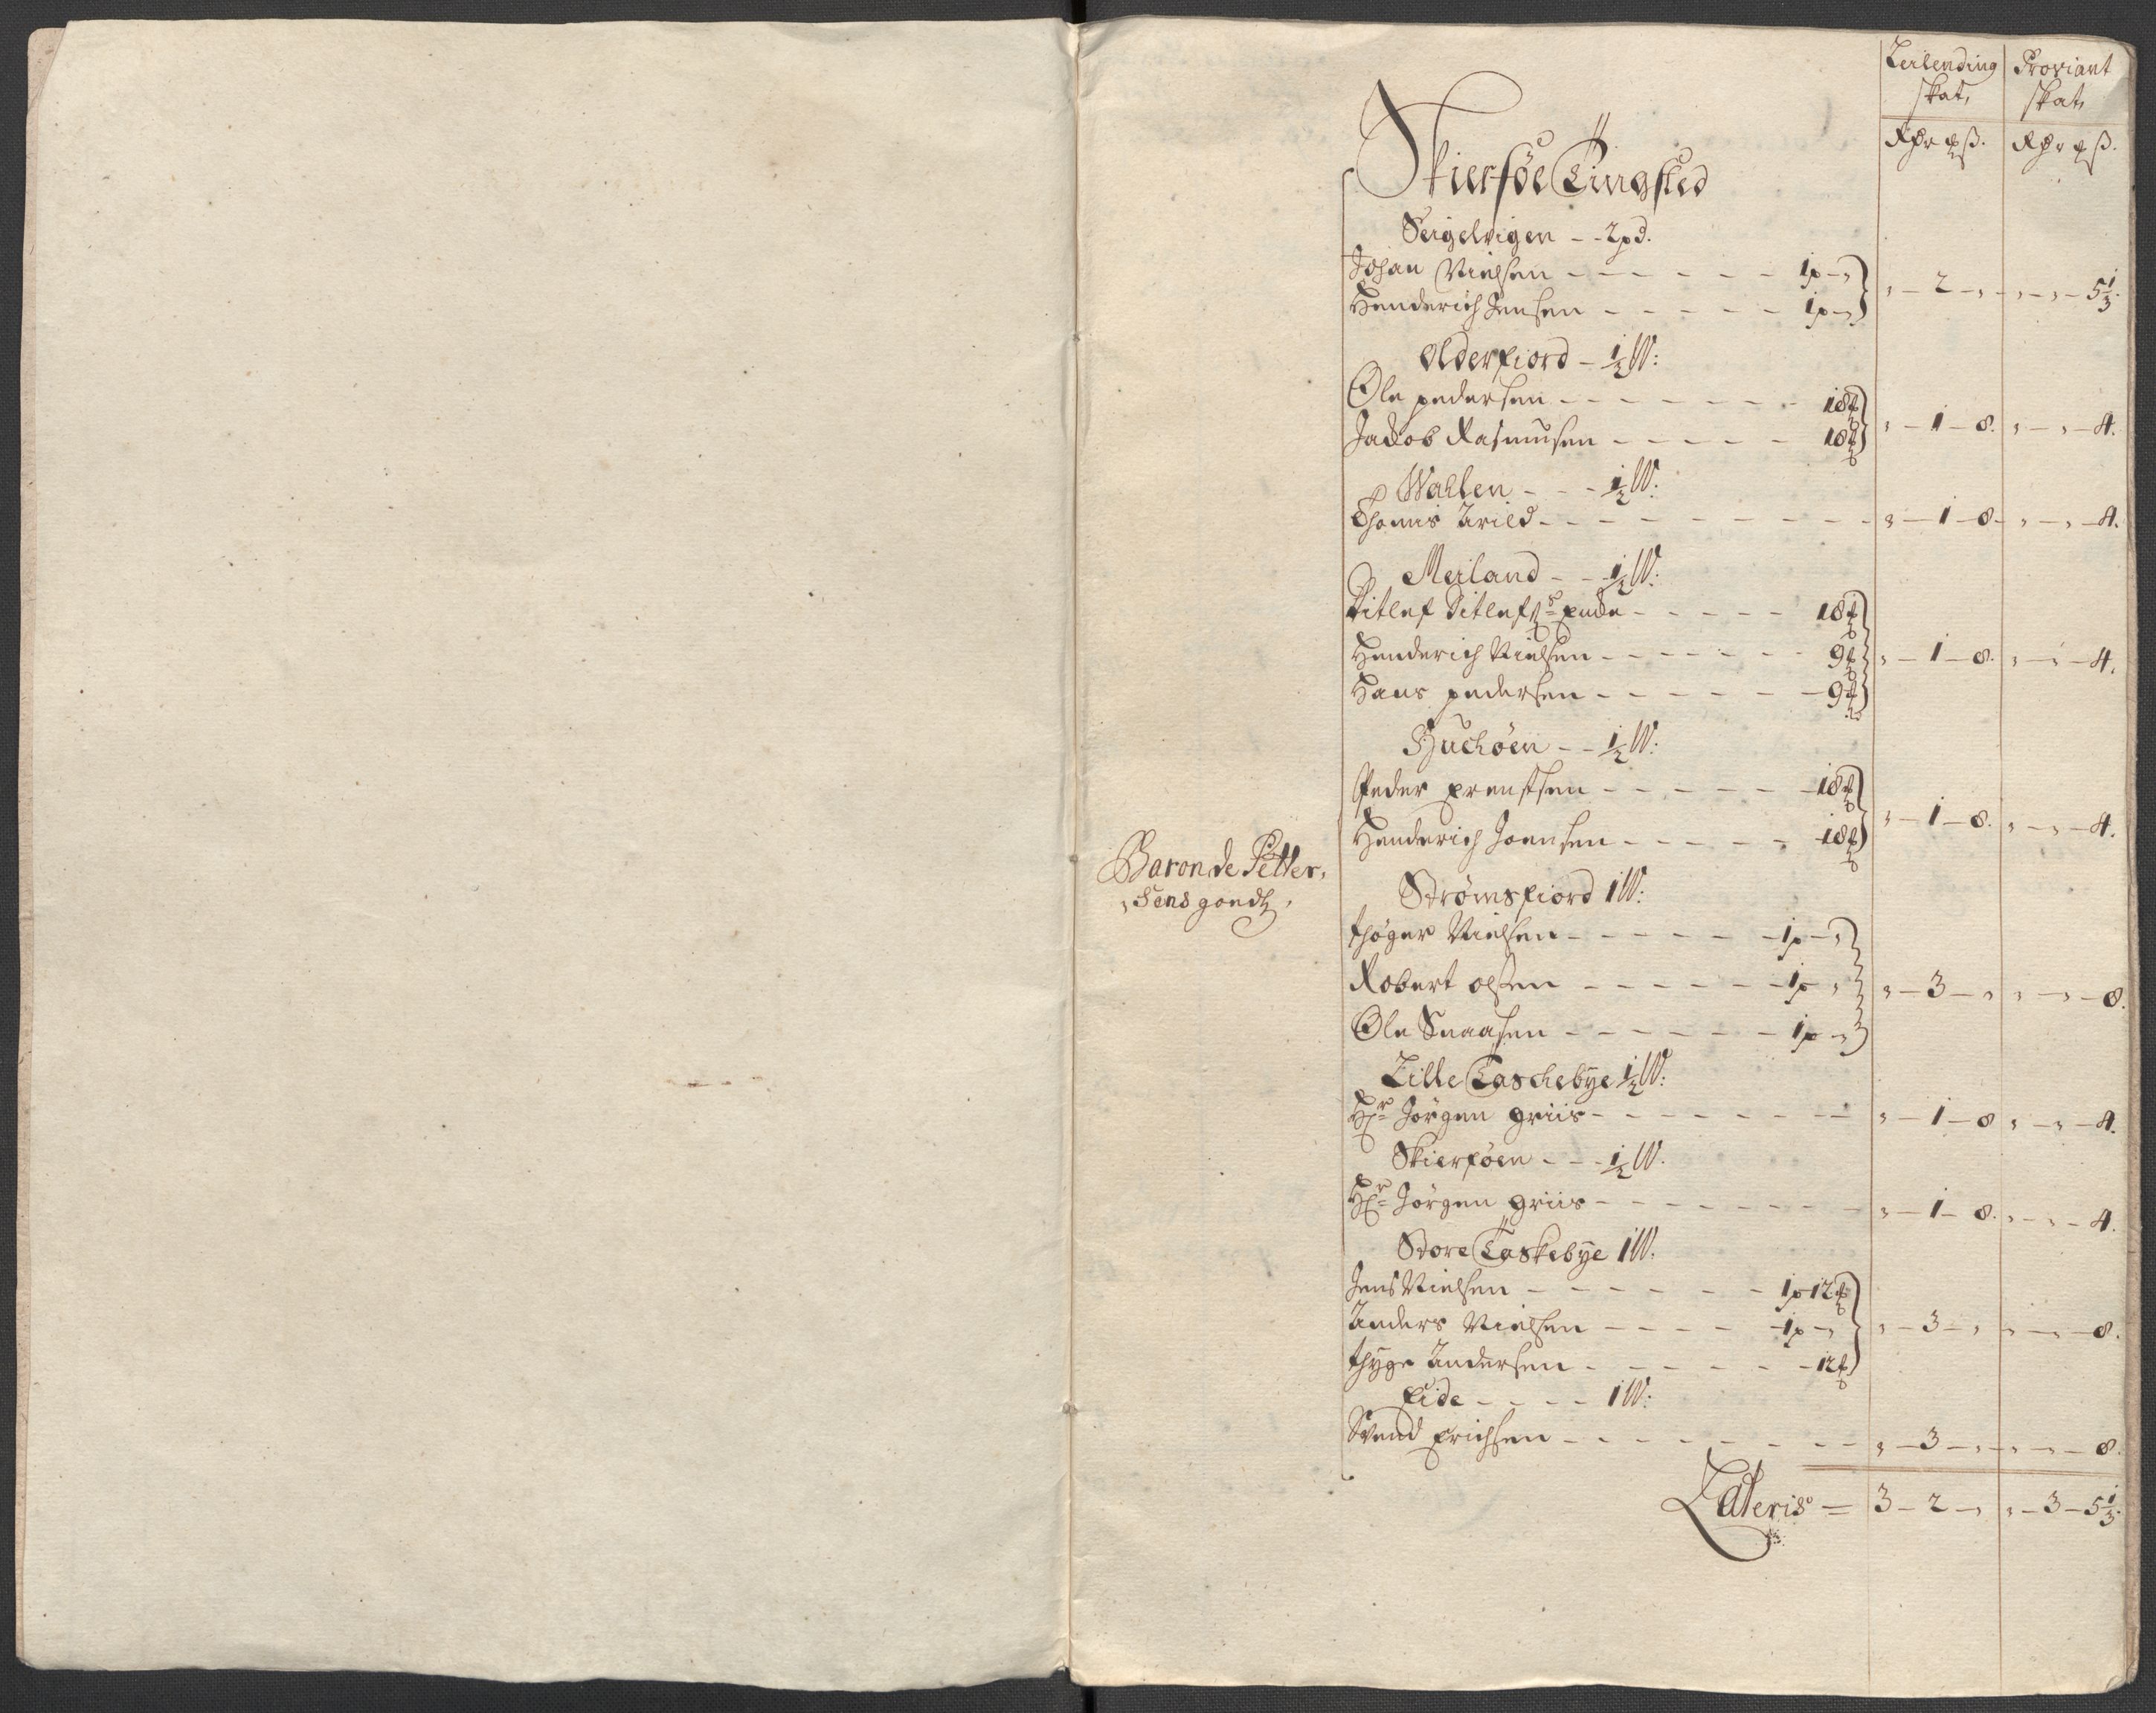 Leilending Proviant
skat, skat,
Rdr ꝑ ß. Rdr ꝑ ß.
Skierføe Tingsted
Seigelvigen - - 2 pd.
Johan Nielsen - - - - - - 1p - „
Henderich Jensen - - - - - 1p - „ „ - 2 - „ - „ - „ - 5 1/3.
Olderfiord - 1/2 W:
Ole pedersen - - - - - - - 18 ℔
Jacob Rasmusen - - - - - 18 ℔ „ - 1 - 8. „ - „ - 4.
Wallen - - - 1/2 W:
Thomis Arild - - - - - - - - - „ - 1 - 8 - „ - „ - 4.
Meiland - - 1/2 W:
Ditlef Ditlefs Encke - - - - - 18 ℔
Henderich Nielsen - - - - - - 9 ℔ „ - 1 - 8. „ - „ - 4.
Hans pedersen - - - - - - 9 ℔
Huchøen - - 1/2 W:
Peder Erenstsen - - - - - - 18 ℔
Henderich Joensen - - - - - 18 ℔ „ - 1 - 8. „ - „ - 4.
Baron de Petter,
„ Sens goedtz,
Strømsfiord 1 W:
Thøger Nielsen - - - - - - 1p - „
Robert olsen - - - - - - 1p „ „ - 3 - „ „ - „ - 8.
Ole Snaasen - - - - - - 1p - „
Lille Taschebye 1/2 W:
Hr Jørgen griis - - - - - - - „ - 1 - 8 „ - „ - 4.
Skierføen - - - 1/2 W.
Hr Jørgen griis - - - - - - - - „ - 1 - 8. „ - „ - 4.
Store Taskebye 1 W.
Jens Nielsen - - - - - - 1p 12 ℔
Anders Nielsen - - - - - 1p - „ „ - 3 - „ „ - „ - 8.
Thyge Andersen - - - - - - 12 ℔
Eide - - - - 1 W:
Svend Erichsen - - - - - - - - „ - 3 - „ - „ - „ - 8.
Lateris = 3 - 2 - „ „ - 3 - 5 1/3.